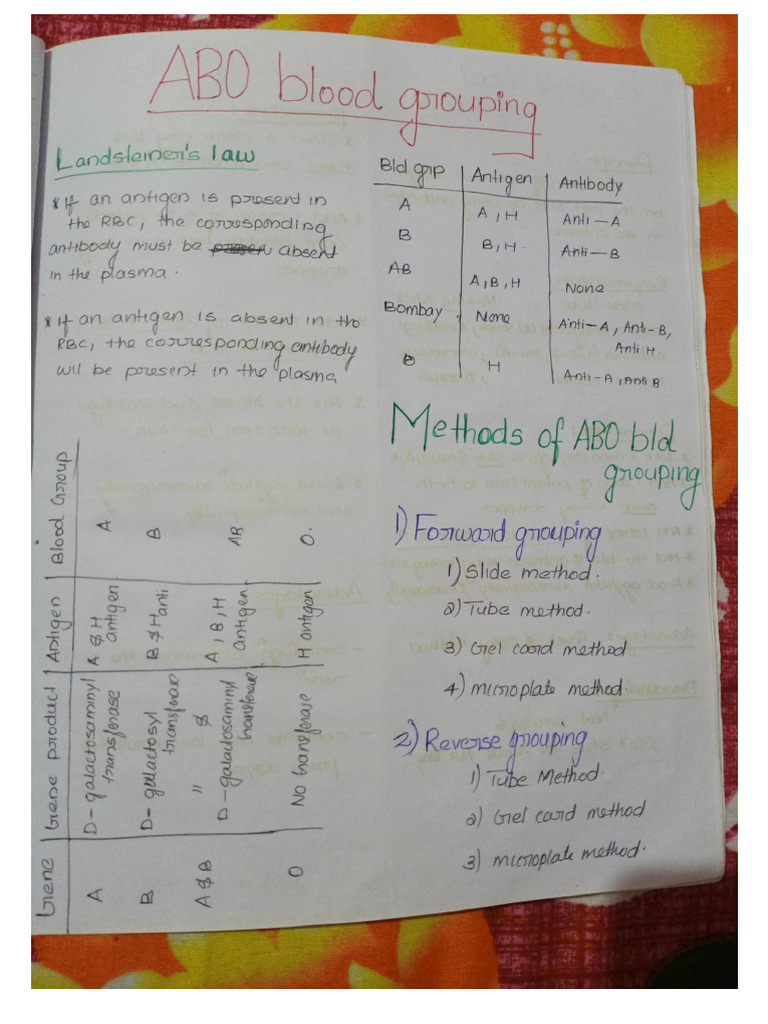 ABO blood grouping
Landsteiner's law
* If an antigen is present in
the RBC, the corresponding
antibody must be absent
in the plasma.
* If an antigen is absent in the
RBC, the corresponding antibody
will be present in the plasma.
Bld grp | Antigen | Antibody
A | A, H | Anti-A
B | B, H. | Anti-B
AB | A, B, H | None
Bombay | None | Anti-A, Anti-B,
Anti H
H | Anti-A, Anti B
Methods of ABO bld
grouping
1) Forward grouping
1) Slide method.
2) Tube method.
3) Gel card method
4) microplate method
2) Reverse grouping
1) Tube Method.
2) Gel card method
3) microplate method.
Gene | Gene product | Antigen | Blood Group
A | D-galactosaminyl transferase | A & H antigen | A
B | D-galactosyl transferase | B & H anti | B
A & B | " & D-galactosaminyl transferase | A, B, H antigen | AB
O | No transferase | H antigen | O.